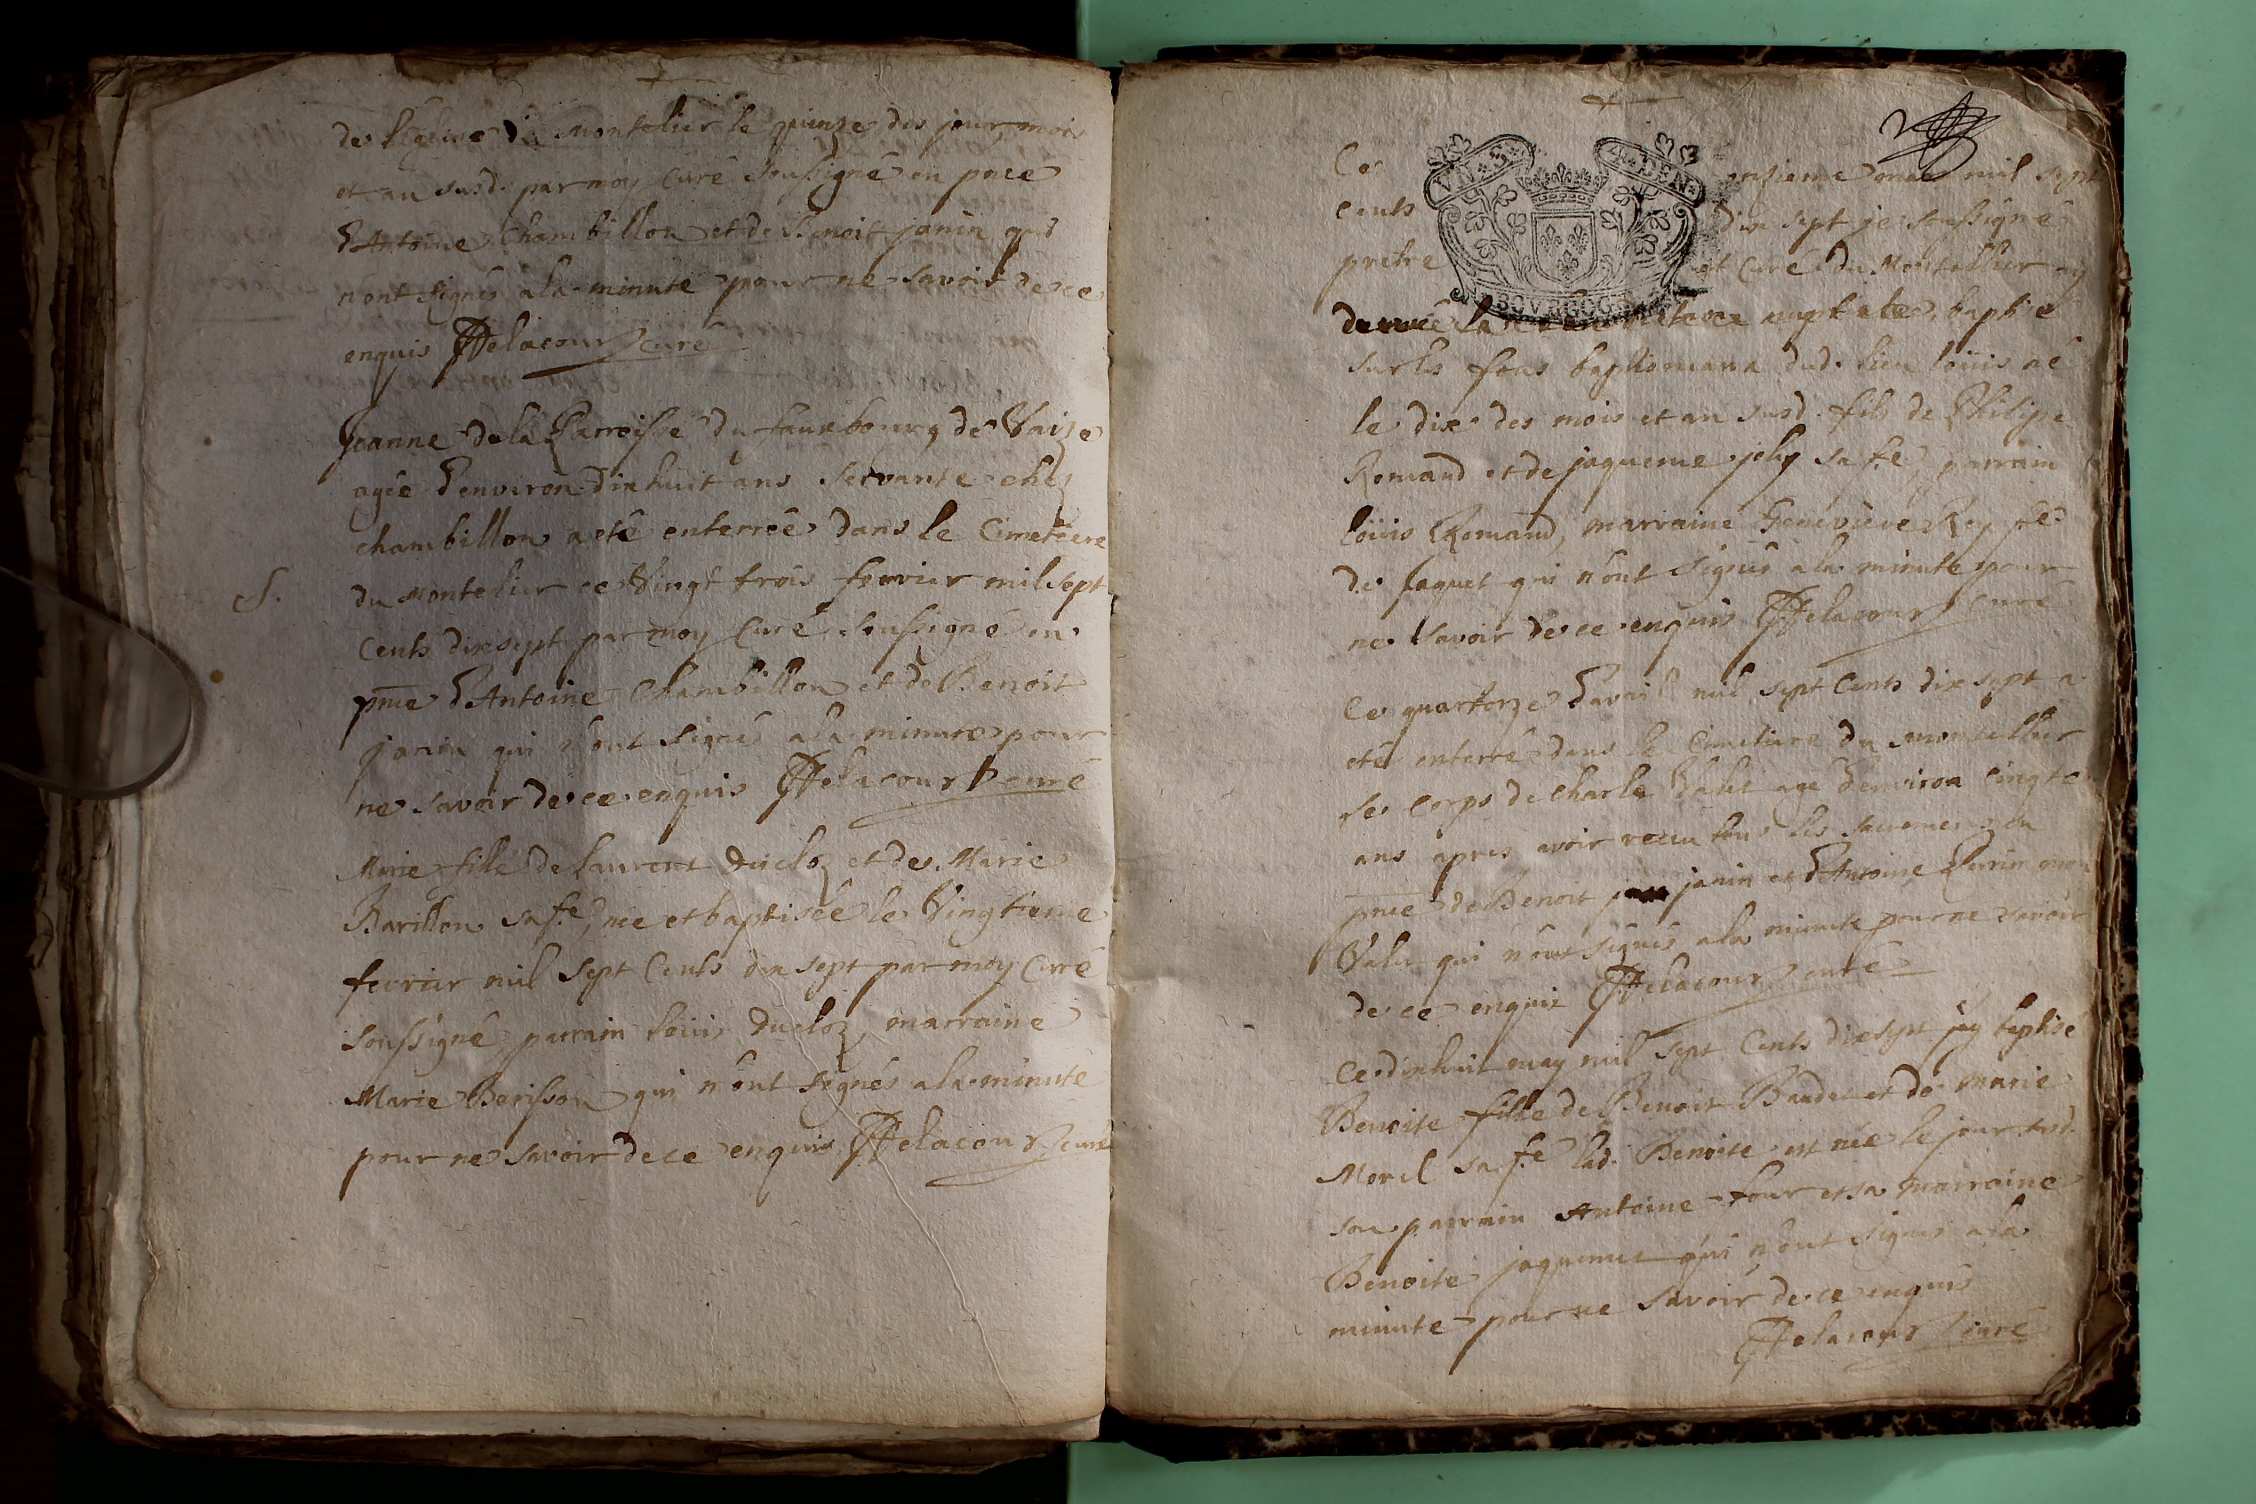 de l'église de Montelier le quinze des jour, mois
et an susd. par moy Curé soussigné en pnce
d'Antoine Chambillon et de Benoit janin qui
n'ont signés a la minute pour ne savoir de ce
enquis Delacour curé
Jeanne de la Parroisse du fauxbourg de Vaize
agée d'environ dixhuit ans servante chez
chambillon a eté enterrée dans le Cimetiere
S. du Montelier ce Vingt trois fevrier mil sept
Cents dix sept par moy Curé soussigné en
pnce d'Antoine Chambillon et de Benoit
janin qui n'ont signés a la minute pour
ne savoir de ce enquis Delacour curé
Marie fille de laurent ducloz et de Marie
Barillon sa fe, née et baptisée le Vingtieme
fevrier mil sept Cents dix sept par moy Curé
soussigné, parrain louis ducloz, marraine
Marie Berisson qui n'ont signés a la minute
pour ne savoir de ce enquis Delacour curé
Ce onzieme mil sept
Cents dix sept je soussigné
prêtre et Curé du Montellier ay
VIN S 4 DEN
BOVRGOG
baptisé
sur les fons baptismaux dud. lieu louis né
le dix des mois et an susd. fils de Philipe
Romand et de jaqueme joly sa fe, parrain
louis Romand, marraine Genevieve Rey fe
de Jaquet qui n'ont signés a la minute pour
ne savoir de ce enquis Delacour curé
Ce quartorze d'avril mil sept Cents dix sept a
eté enterré dans le Cimetiere du Montellier
le Corps de Charle agé d'environ Cinqte
ans apres avoir receu tous les sacremens en
pnce de Benoit janin et d'Antoine Perrin mon
Valet qui n'ont signés a la minute pour ne savoir
de ce enquis Delacour curé
Ce dixhuit may mil sept Cents dixsept j'ay baptisé
Benoite fille de Benoit Baudet et de marie
Morel sa fe lad. Benoite est née le jour susd.
son parrain Antoine four et sa marraine
Benoite jaquemet qui n'ont signés a la
minute pour ne savoir de ce enquis
Delacour curé